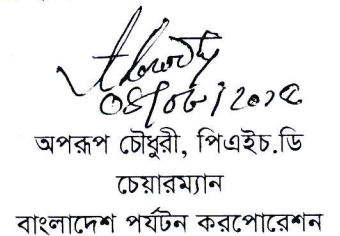 অপরূপ চৌধুরী, পিএইচ.ডি
চেয়ারম্যান
বাংলাদেশ পর্যটন করপোরেশন